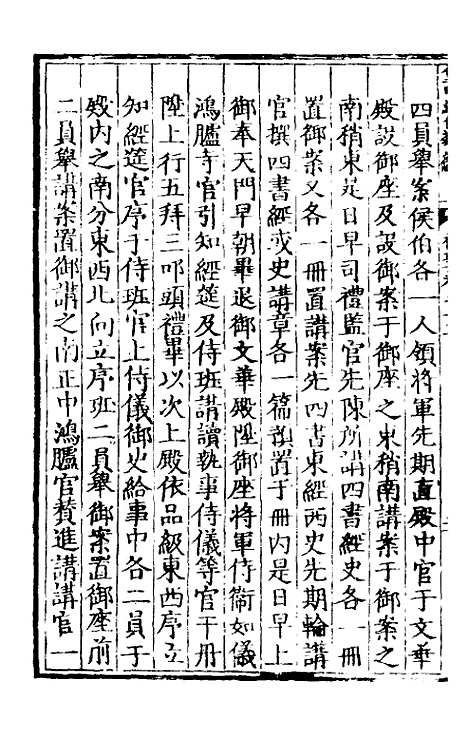 四員舉案侯伯各一人領將軍先期直殿中官于文華
殿設御座及設御案于御座之東稍南講案于御案之
南稍東是日早司禮監官先陳所講四書經史各一冊
置御案又各一冊置講案先四書東經西史先期輪講
官撰四書經或史講章各一篇預置于冊內是日早上
御奉天門早朝畢退御文華殿陞御座將軍侍衛如儀
鴻臚寺官引知經筵及侍班講讀執事侍儀等官于丹
陛上行五拜三叩頭禮畢以次上殿依品級東西序立
知經筵官序于侍班官上侍儀御史給事中各二員于
殿內之南分東西北向立序班二員舉御案置御座前
二員舉講案置御講之南正中鴻臚官贊進講講官一